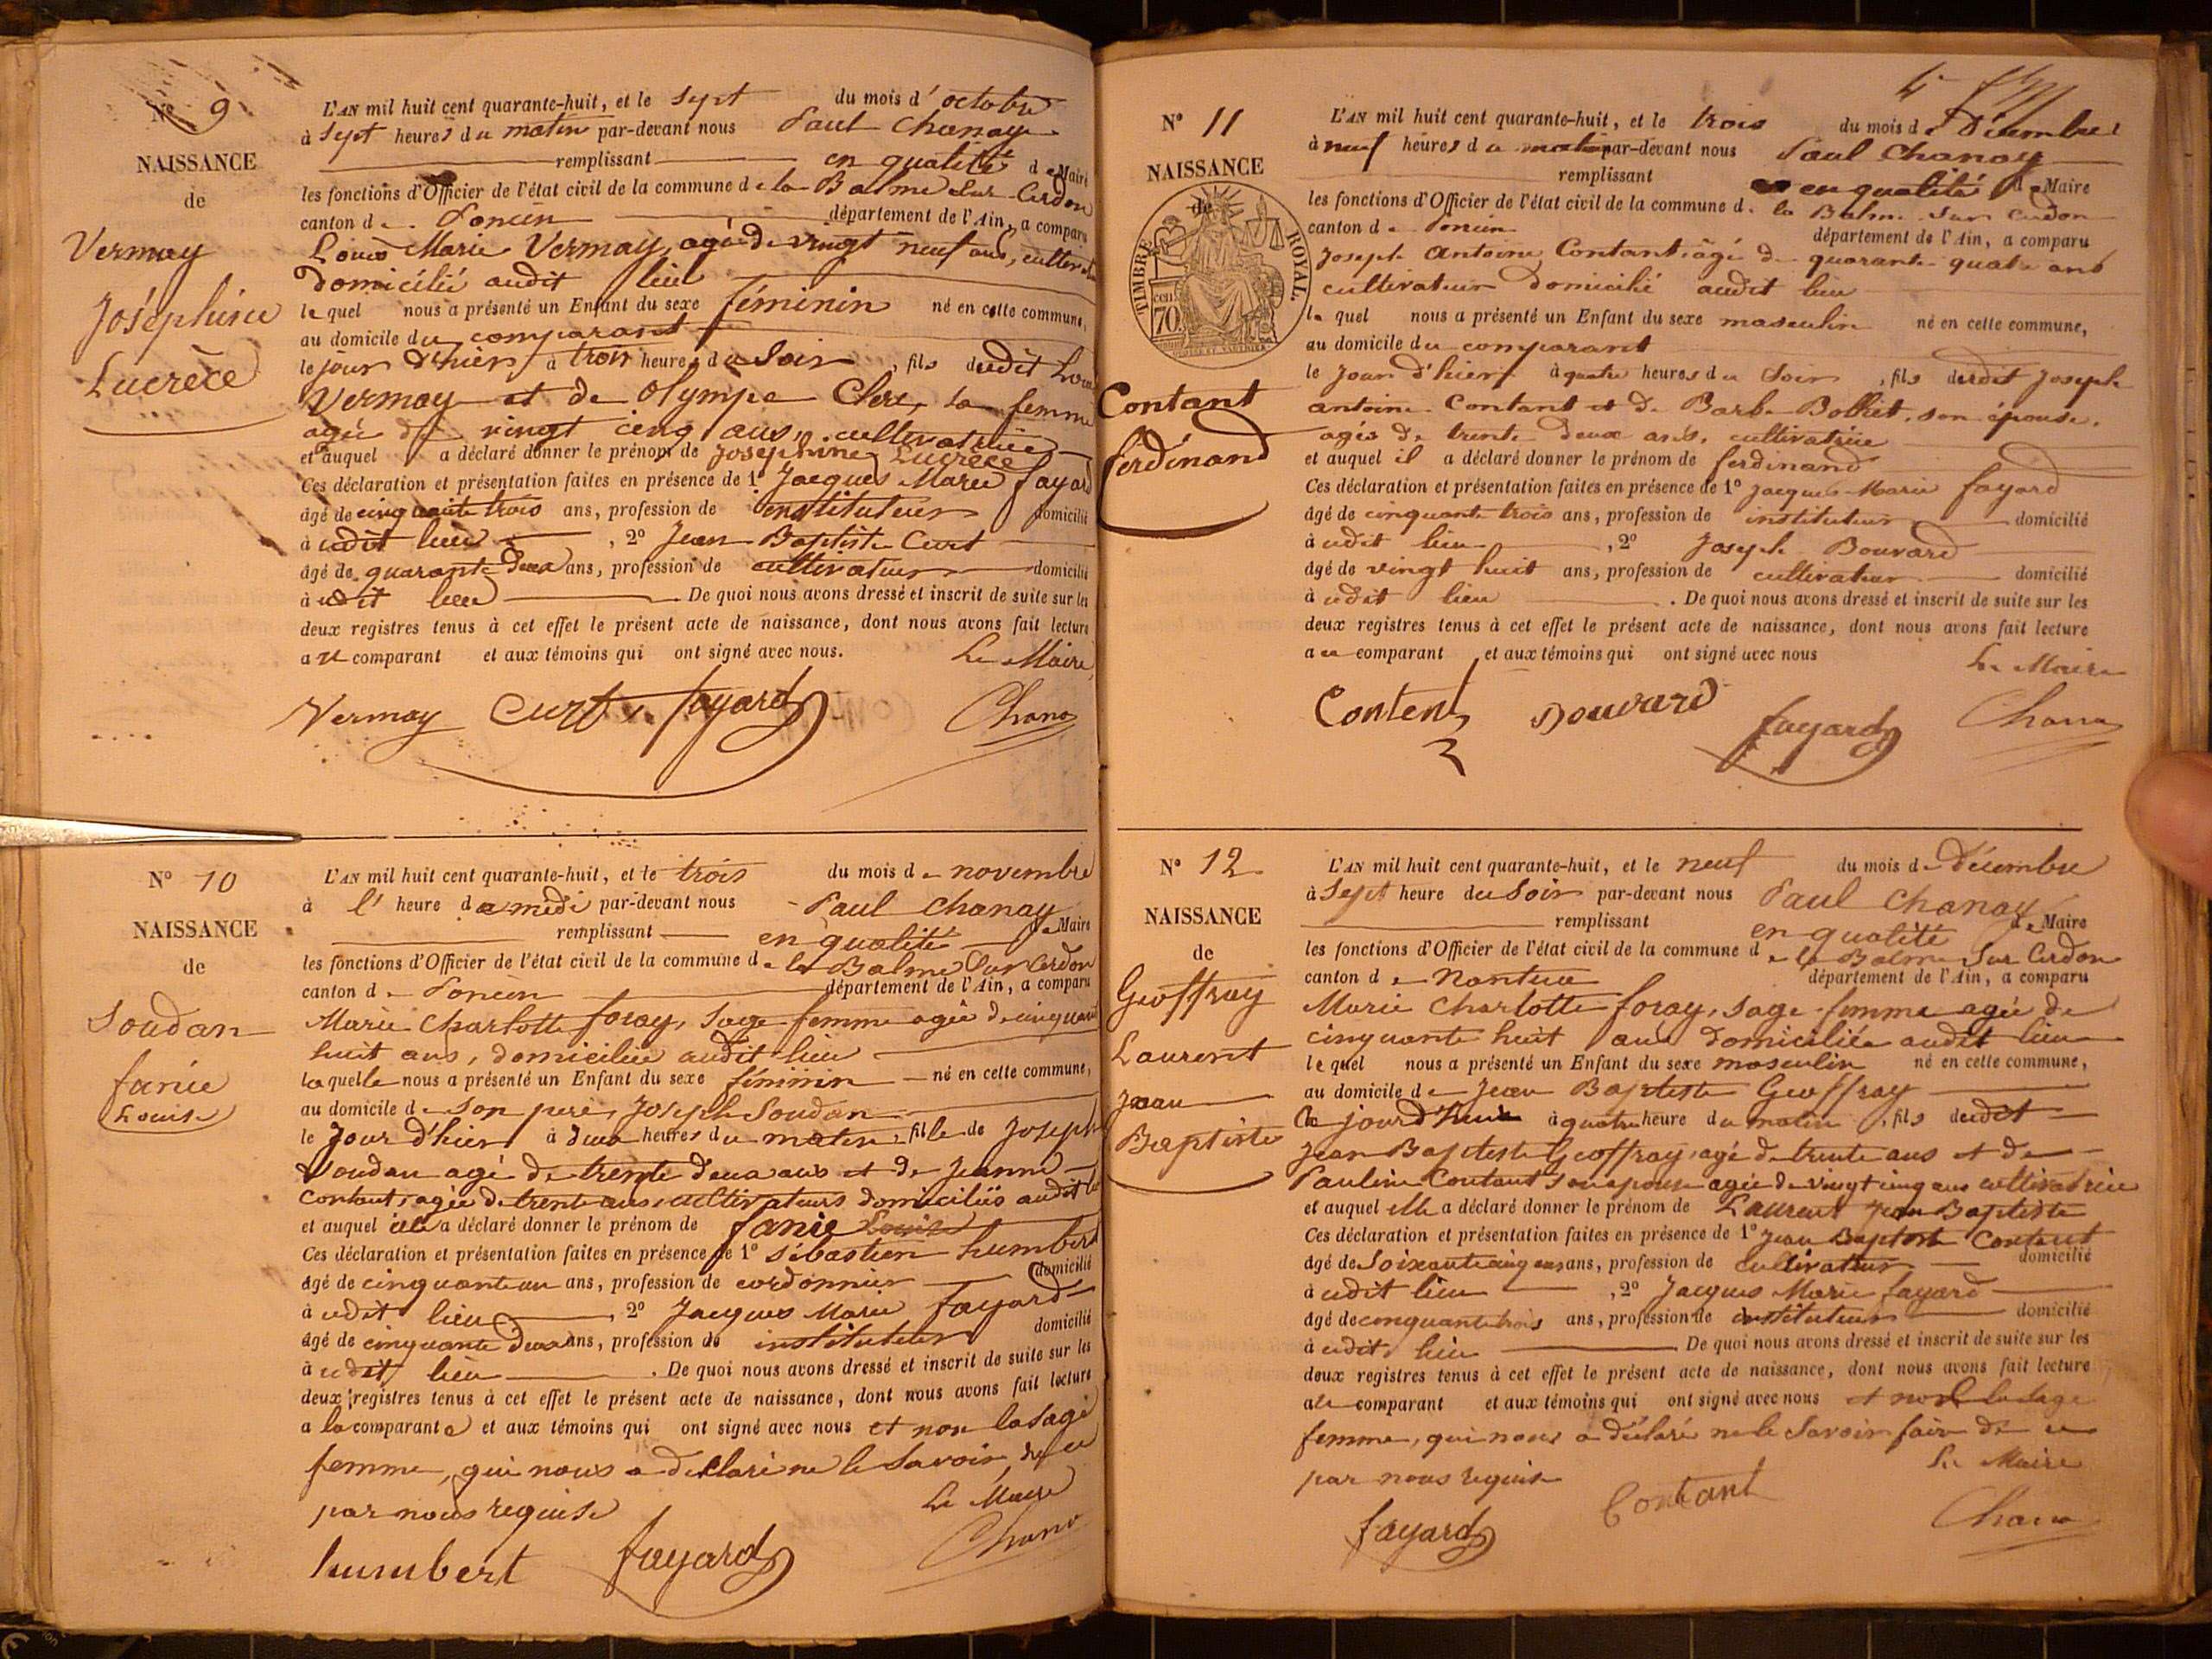 N° 9
NAISSANCE
de
Vermay
Joséphine
Lucrèce
L'AN mil huit cent quarante-huit, et le sept du mois d'octobre
à sept heures du matin par-devant nous Paul Chanay
remplissant en qualité de Maire
les fonctions d'Officier de l'état civil de la commune de la Balme sur Cerdon
canton de Poncin département de l'Ain, a comparu
Louis Marie Vermay, agé de vingt neuf ans, cultivateur
domicilié audit lieu
lequel nous a présenté un Enfant du sexe féminin né en cette commune,
au domicile du comparant
le jour d'hier à trois heures du soir, fils dudit Louis
Vermay et de Olympe Clerc, sa femme
agée de vingt cinq ans, cultivatrice
et auquel a déclaré donner le prénom de Josephine Lucrèce
Ces déclaration et présentation faites en présence de 1° Jacques Marie fayard
âgé de cinquante trois ans, profession de instituteur domicilié
à udit lieu, 2° Jean Baptiste Curt
âgé de quarante deux ans, profession de cultivateur domicilié
à udit lieu De quoi nous avons dressé et inscrit de suite sur les
deux registres tenus à cet effet le présent acte de naissance, dont nous avons fait lecture
au comparant et aux témoins qui ont signé avec nous.
Le Maire
Vermay Curt fayard Chana
N° 10
NAISSANCE
de
Soudan
fanie
Louise
L'AN mil huit cent quarante-huit, et le trois du mois de novembre
à l' heure de midi par-devant nous Paul Chanay
remplissant en qualité de Maire
les fonctions d'Officier de l'état civil de la commune de la Balme sur Cerdon
canton de Poncin département de l'Ain, a comparu
Marie Charlotte foray, sage femme agée de cinquante
huit ans, domiciliée audit lieu
laquelle nous a présenté un Enfant du sexe féminin né en cette commune,
au domicile de son père, Joseph Soudan
le Jour d'hier à deux heures du matin, fille de Joseph
Soudan agé de trente deux ans et de Jeanne
Contant, agée de trente ans, cultivateurs domiciliés audit lieu
et auquel elle a déclaré donner le prénom de fanie Louise
Ces déclaration et présentation faites en présence de 1° sébastien humbert
âgé de cinquante un ans, profession de cordonnier domicilié
à udit lieu, 2° Jacques Marie fayard
âgé de cinquante deux ans, profession de instituteur domicilié
à udit lieu. De quoi nous avons dressé et inscrit de suite sur les
deux registres tenus à cet effet le présent acte de naissance, dont nous avons fait lecture
a la comparante et aux témoins qui ont signé avec nous et non la sage
femme, qui nous a déclaré ne le savoir, de ce
par nous requise
Le Maire
humbert fayard Chana
N° 11
NAISSANCE
de
TIMBRE ROYAL.
cen. 70
Contant
ferdinand
L'AN mil huit cent quarante-huit, et le trois du mois de Décembre
à neuf heures du matin par-devant nous Paul Chanay
remplissant en qualité de Maire
les fonctions d'Officier de l'état civil de la commune de la Balme sur Cerdon
canton de Poncin département de l'Ain, a comparu
Joseph Antoine Contant, âgé de quarante quatre ans
cultivateur domicilié audit lieu
lequel nous a présenté un Enfant du sexe masculin né en cette commune,
au domicile du comparant
le Jour d'hier à quatre heures du soir, fils dudit Joseph
antoine Contant et de Barbe Bolliet, son épouse,
agés de trente deux ans, cultivatrice
et auquel il a déclaré donner le prénom de ferdinand
Ces déclaration et présentation faites en présence de 1° Jacques Marie fayard
âgé de cinquante trois ans, profession de instituteur domicilié
à udit lieu, 2° Joseph Bouvard
âgé de vingt huit ans, profession de cultivateur domicilié
à udit lieu. De quoi nous avons dressé et inscrit de suite sur les
deux registres tenus à cet effet le présent acte de naissance, dont nous avons fait lecture
au comparant et aux témoins qui ont signé avec nous
Le Maire
Content Bouvard fayard Chana
N° 12
NAISSANCE
de
Geoffray
Laurent
Jean
Baptiste
L'AN mil huit cent quarante-huit, et le neuf du mois de Décembre
à Sept heure du Soir par-devant nous Paul Chanay
remplissant en qualité de Maire
les fonctions d'Officier de l'état civil de la commune de la Balme Sur Cerdon
canton de Nantua département de l'Ain, a comparu
Marie Charlotte foray, sage femme agée de
cinquante huit ans domiciliée audit lieu
lequel nous a présenté un Enfant du sexe masculin né en cette commune,
au domicile de Jean Baptiste Geoffray
le jourd'hui à quatre heure du matin, fils dudit
Jean Baptiste Geoffray, agé de trente ans et de
Pauline Contant son épouse agée de vingt cinq ans cultivatrice
et auquel elle a déclaré donner le prénom de Laurent Jean Baptiste
Ces déclaration et présentation faites en présence de 1° Jean Baptiste Contant
âgé de Soixante cinq ans ans, profession de Cultivateur domicilié
à udit lieu, 2° Jacques Marie fayard
âgé de cinquante trois ans, profession de instituteur domicilié
à udit lieu De quoi nous avons dressé et inscrit de suite sur les
deux registres tenus à cet effet le présent acte de naissance, dont nous avons fait lecture
ale comparant et aux témoins qui ont signé avec nous et non la sage
femme, qui nous a déclaré ne le savoir faire de ce
par nous requise
Le Maire
fayard Contant Chana